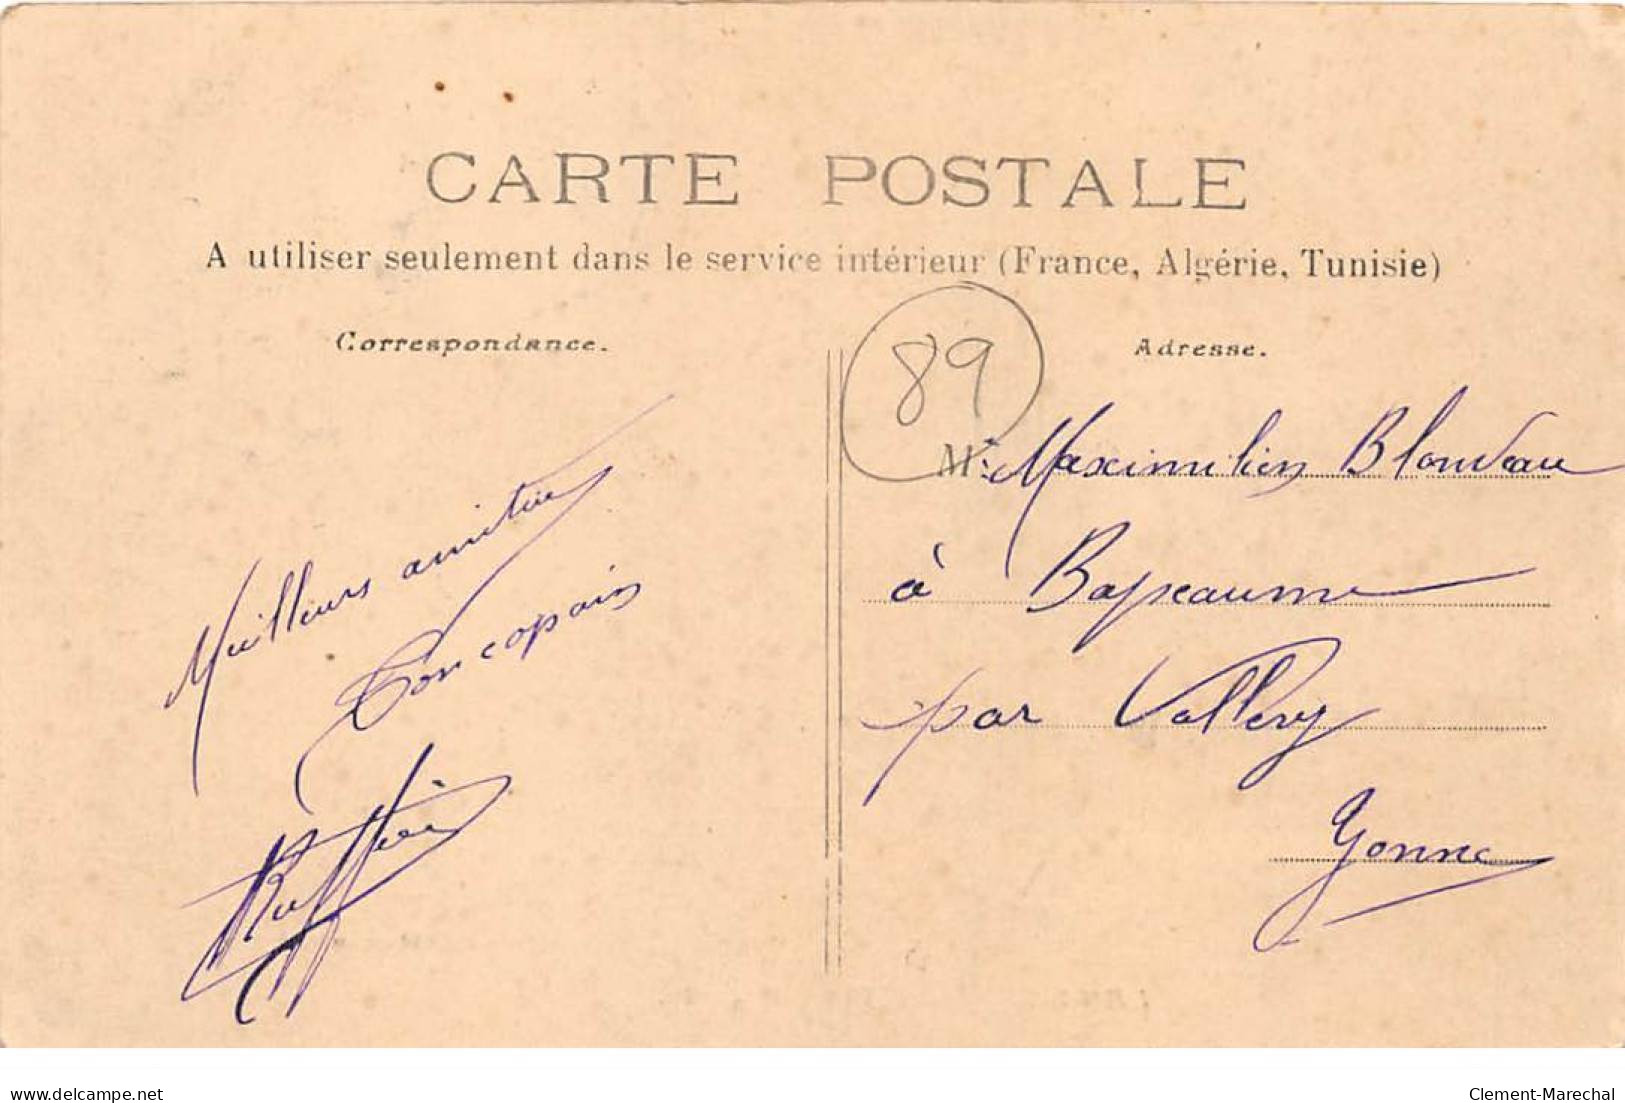 CARTE POSTALE
A utiliser seulement dans le service intérieur (France, Algérie, Tunisie)
Correspondance.
Meilleurs amitiés
Ton copain
Adresse.
89
Mr. Maximilien Blondeau
à Bapeaume
par Vallery
Yonne
www.delcampe.net
Clement-Marechal